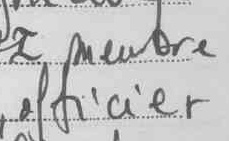 membre
officier